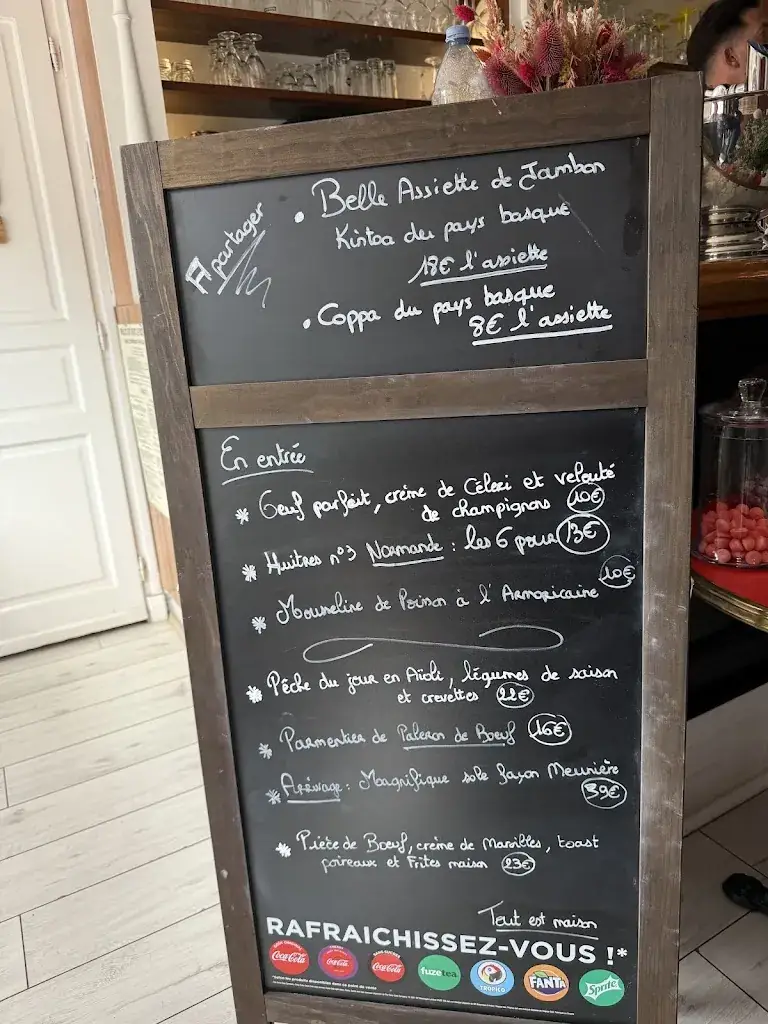 A partager
• Belle Assiette de Jambon
Kintoa du pays basque
18€ l'assiette
• Coppa du pays basque
8€ l'assiette
En entrée
* Oeuf parfait, crème de Céleri et velouté
de champignons 10€
* Huitres n°3 Normande : les 6 pour 13€
10€
* Mousseline de Poisson à l'Armoricaine
* Pêche du jour en Aïoli, légumes de saison
et crevettes 22€
* Parmentier de Paleron de Boeuf 16€
* Arrivage : Magnifique sole façon Meunière
39€
* Pièce de Boeuf, crème de Maroilles, toast
poireaux et Frites maison 23€
Tout est maison
RAFRAICHISSEZ-VOUS !*
Coca-Cola Coca-Cola Coca-Cola fuzetea TROPICO FANTA Sprite